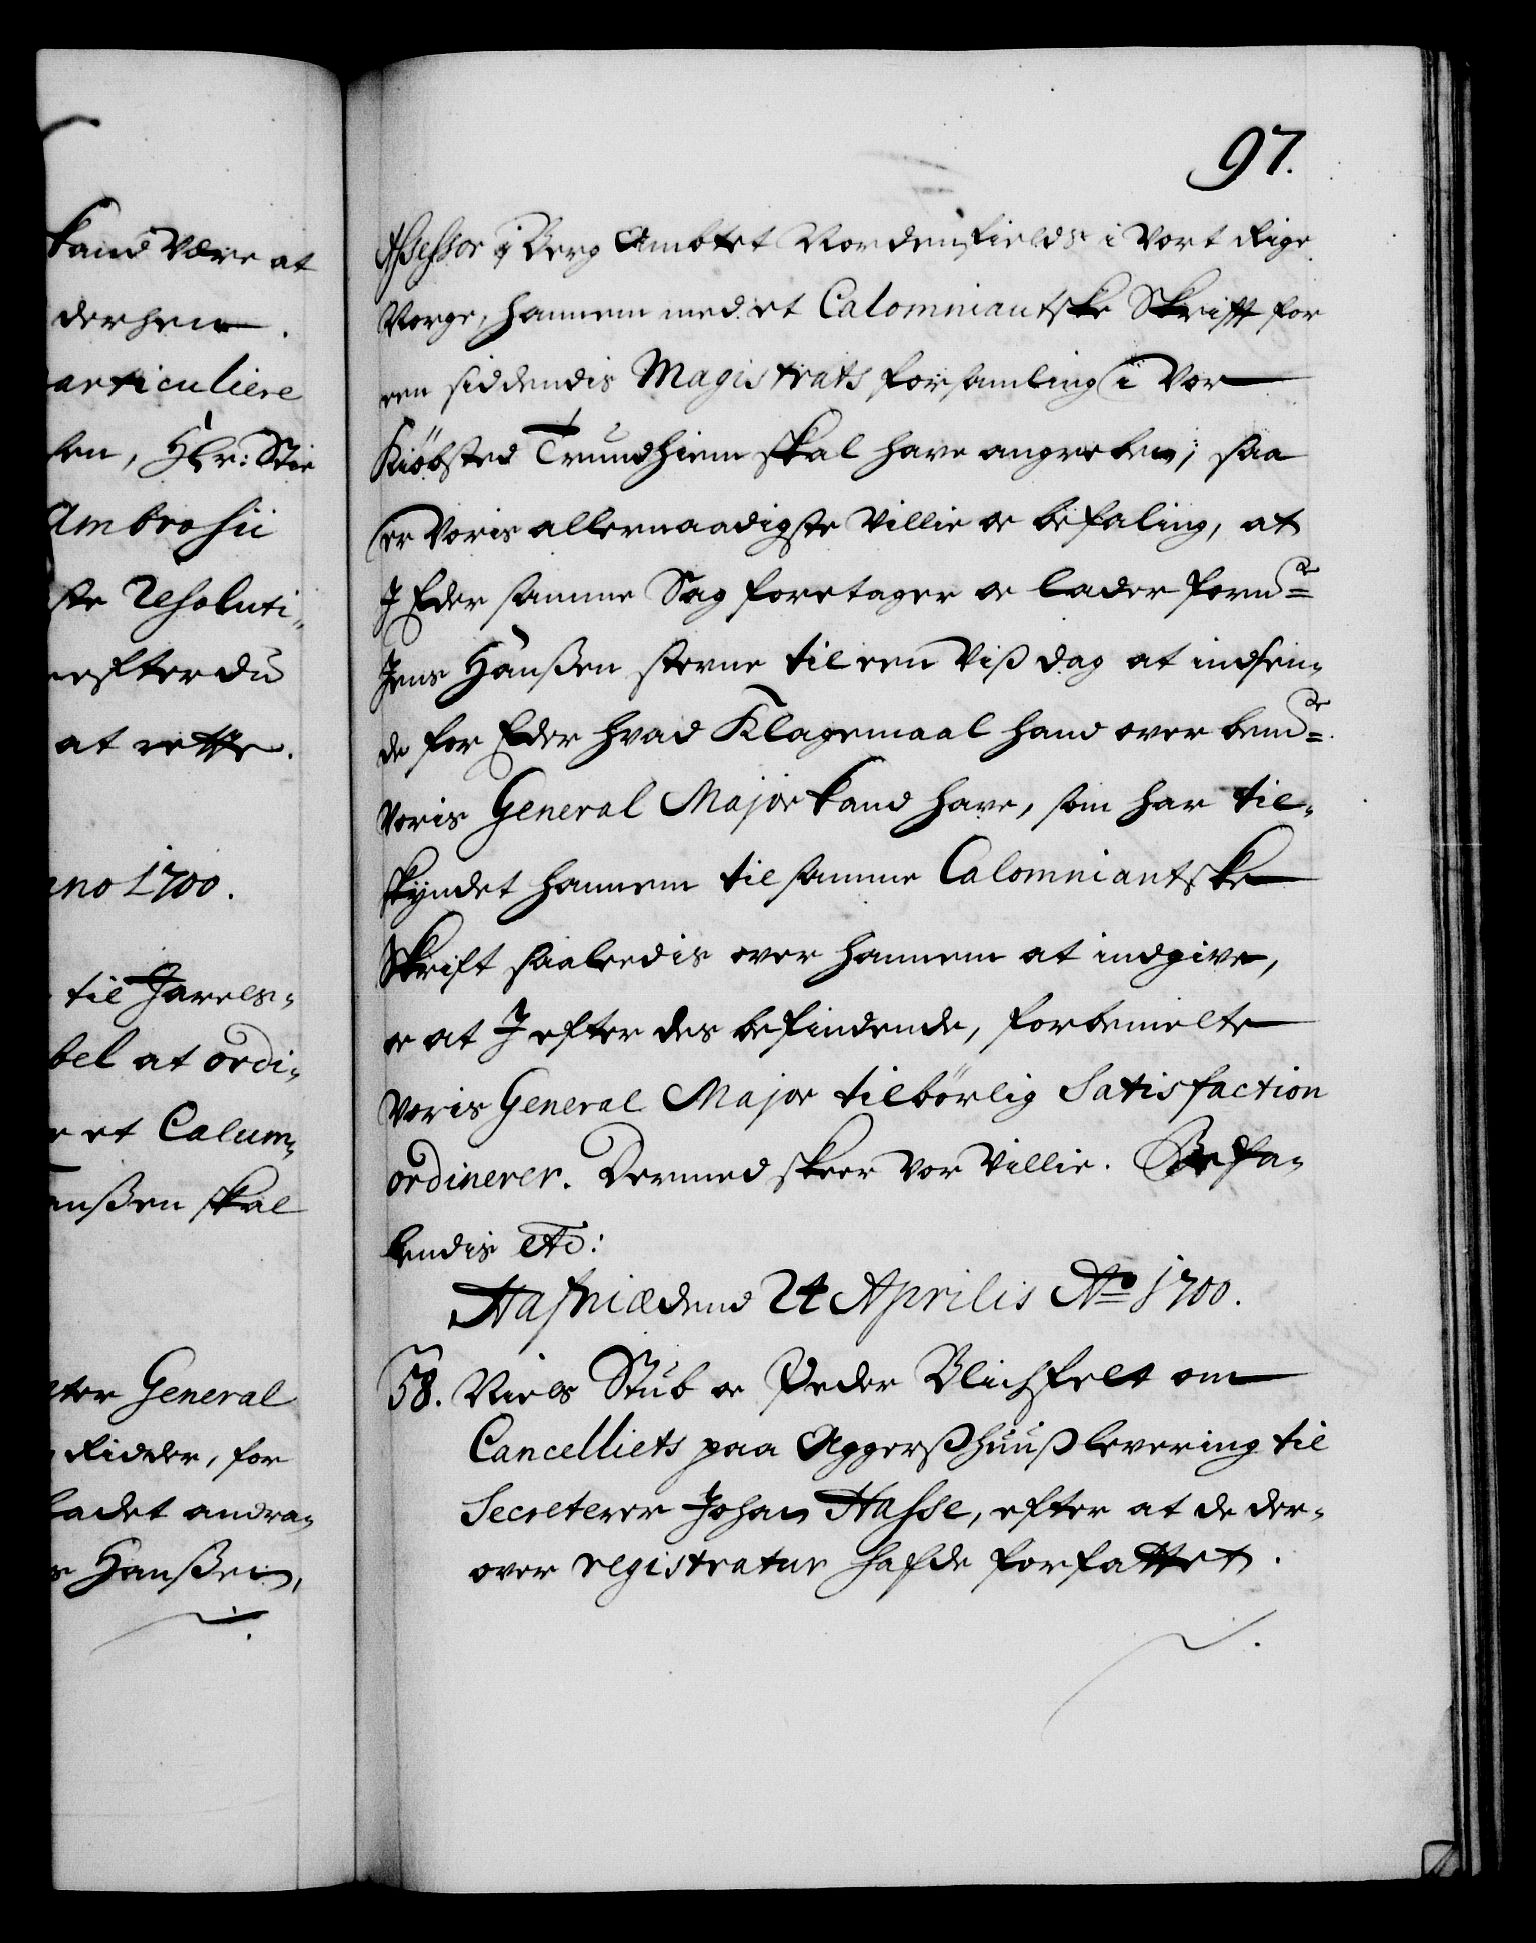 kand være at
derhen.
articuliere
sen, Hr: Stie
Ambrosii
ste Resoluti,,
efter du
at rette.
nno 1700.
til Jarels,,
bel at ordi,,
r et Calum,,
anßen skal
ter General
Ridder, for
ladet andra,,
s Hanßen,
97.
Assessor i Berg Ambtet Nordenfields i Vort Rige
Norge, hannem med et Calomniantske Skrifft for
een siddendis Magistrats forsamling i Vor
Kiöbsted Trundhiem skal have angreben; saa
er Voris allernaadigste Villie oc befaling, at
J Eder samme Sag foretager oc lader forn:de
Jens Hanßen stevne til een Viß dag at indsen,,
de for Eder hvad Klagemaal hand over bem:de
Voris General Major kand have, som har til,,
skyndet hannem til samme Calomniantske
Skrift saaledis over hannem at indgive,
oc at J efter des befindende, forbemelte
Voris General Major tilbörlig Satisfaction
ordinerer. Dermed skeer Vor Villie. Befa,,
lendis etc:
Hafniæ dend 24 Aprilis Ao 1700.
58. Niels Stub oc Peder Blichfelt om
Cancelliets paa Aggerßhuuß levering til
Secreterer Johan Hasse, efter at de der,,
over registratur hafde forfattet.